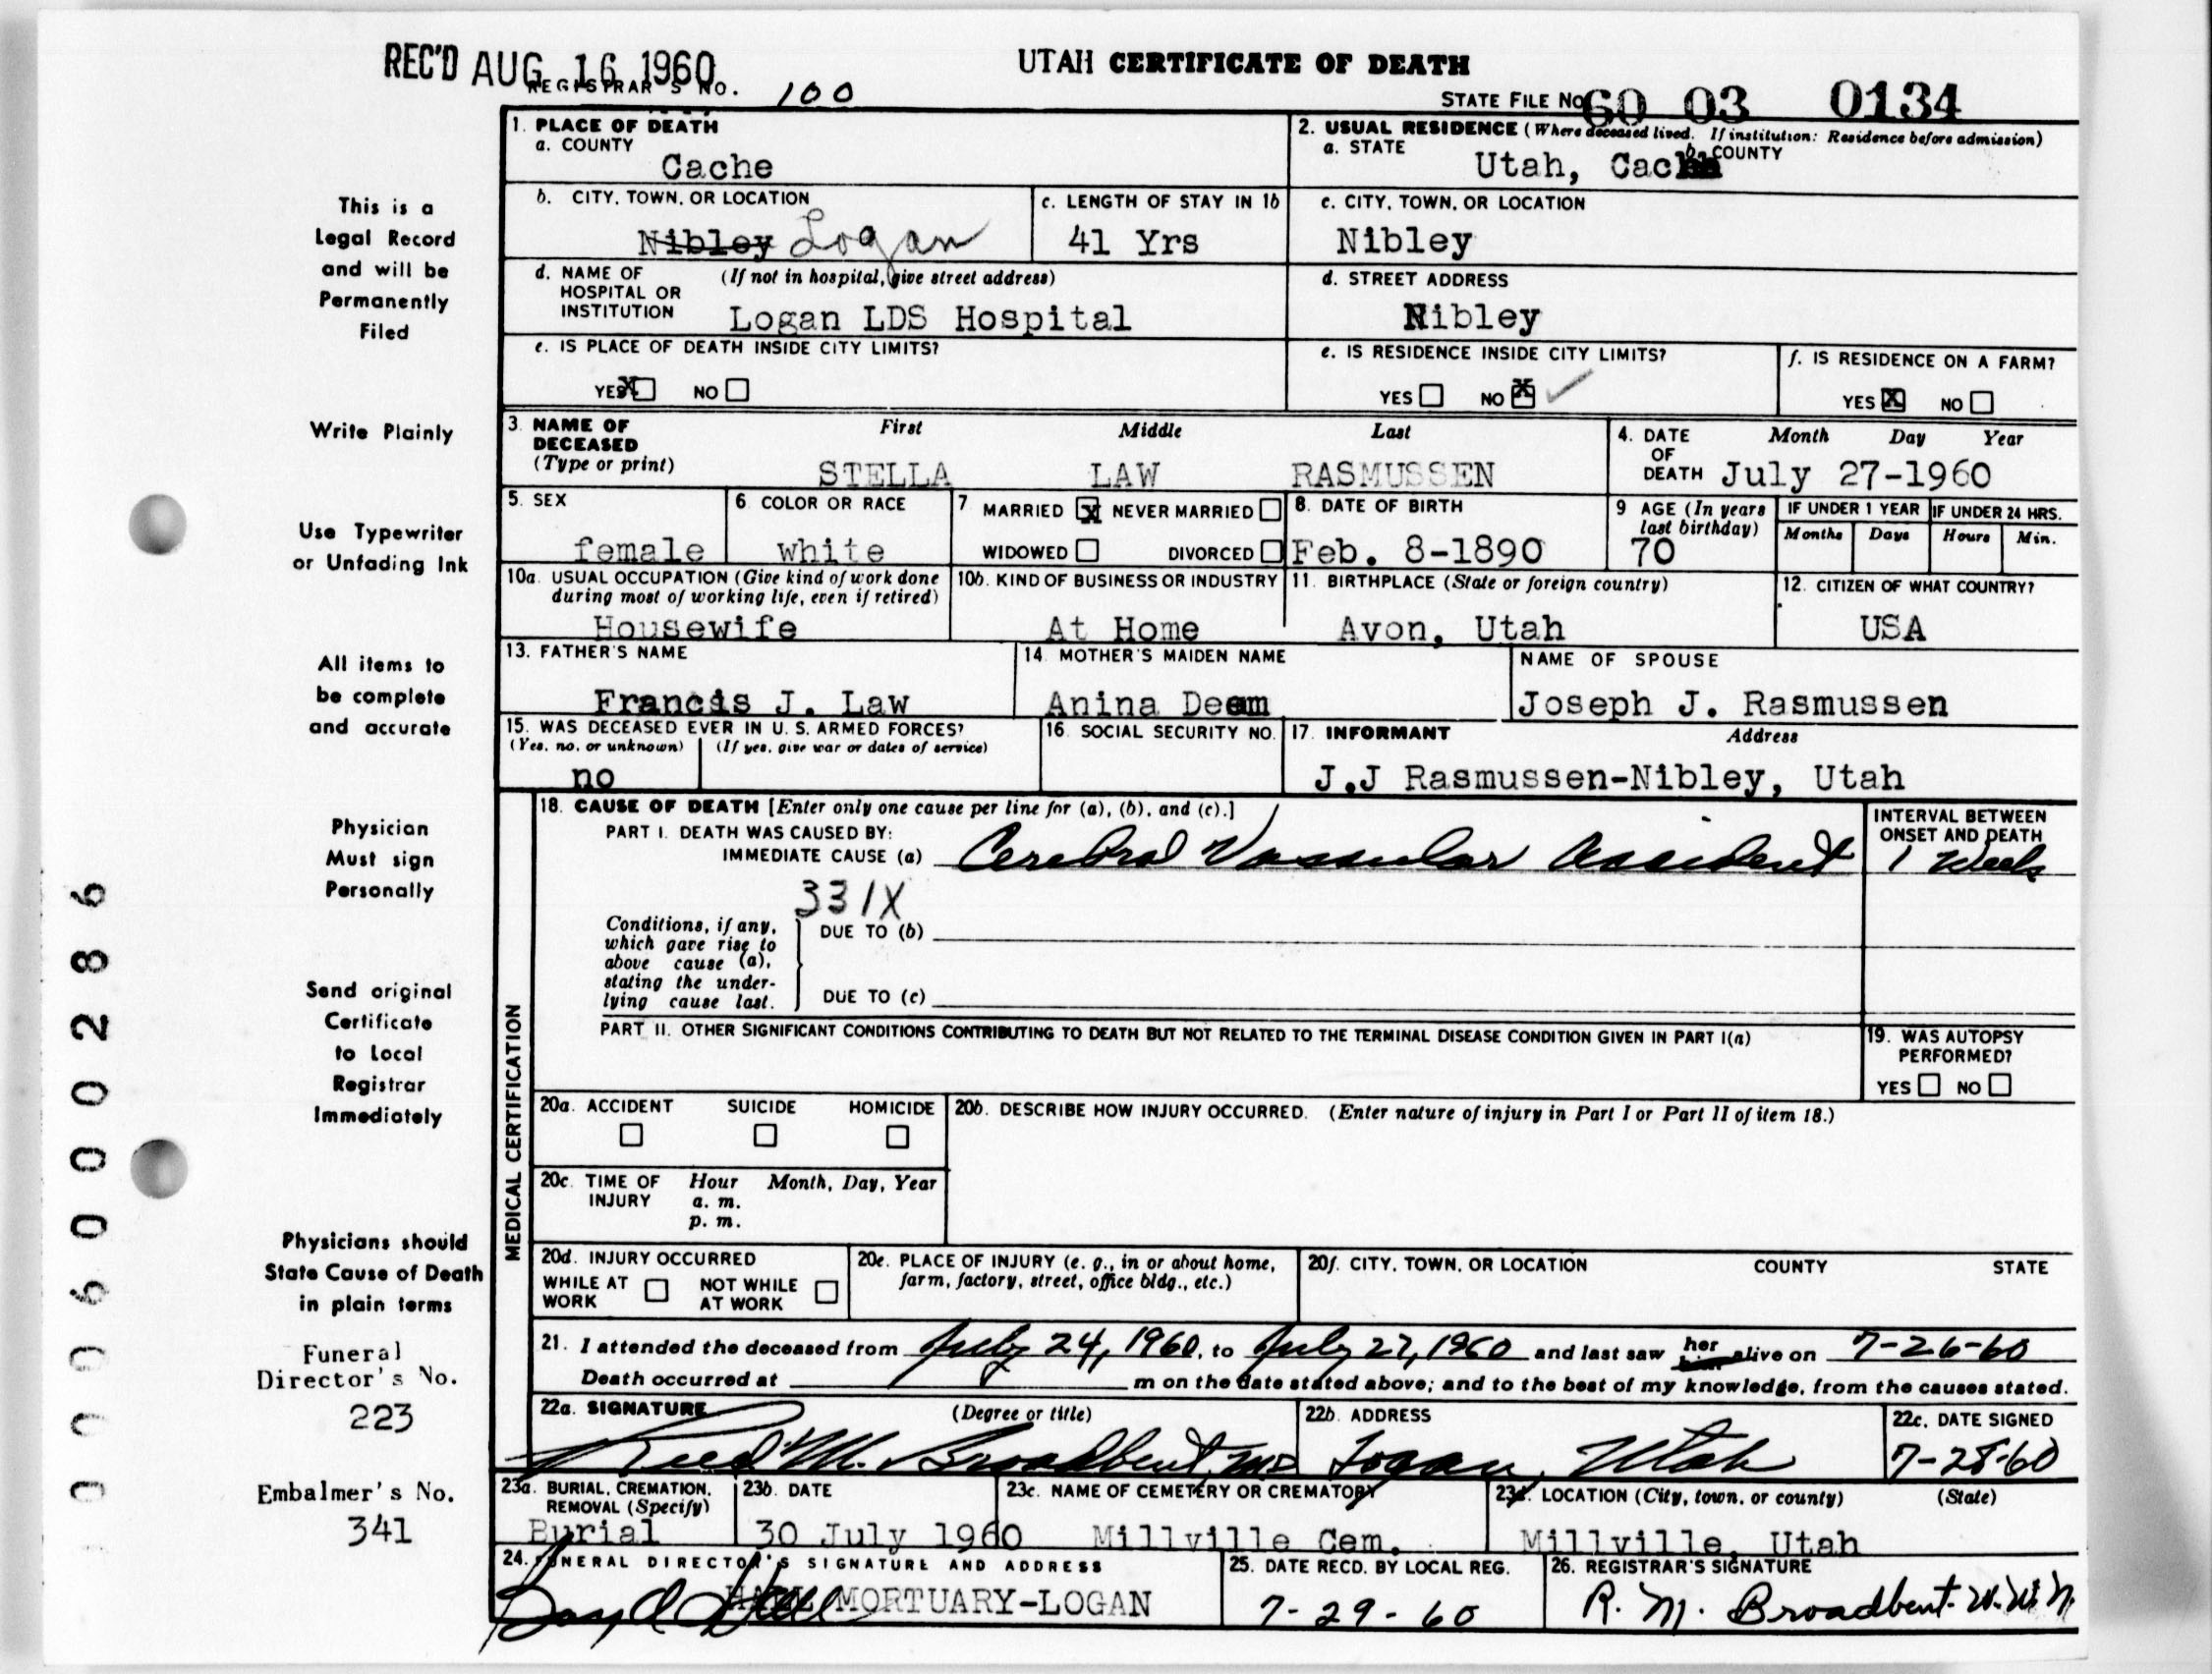 REC'D AUG 16 1960
REGISTRAR'S NO. 100
UTAH CERTIFICATE OF DEATH
STATE FILE NO. 60 03 0134
1. PLACE OF DEATH
a. COUNTY
Cache
2. USUAL RESIDENCE (Where deceased lived. If institution: Residence before admission)
a. STATE b. COUNTY
Utah, Cache
b. CITY, TOWN, OR LOCATION
Nibley Logan
c. LENGTH OF STAY IN 1b
41 Yrs
c. CITY, TOWN, OR LOCATION
Nibley
d. NAME OF HOSPITAL OR INSTITUTION (If not in hospital, give street address)
Logan LDS Hospital
d. STREET ADDRESS
Nibley
e. IS PLACE OF DEATH INSIDE CITY LIMITS?
YES X NO
e. IS RESIDENCE INSIDE CITY LIMITS?
YES NO X
f. IS RESIDENCE ON A FARM?
YES X NO
3. NAME OF DECEASED (Type or print)
First Middle Last
STELLA LAW RASMUSSEN
4. DATE OF DEATH Month Day Year
July 27-1960
5. SEX
female
6. COLOR OR RACE
white
7 MARRIED X NEVER MARRIED
WIDOWED DIVORCED
8. DATE OF BIRTH
Feb. 8-1890
9 AGE (In years last birthday)
70
IF UNDER 1 YEAR
Months Days
IF UNDER 24 HRS.
Hours Min.
10a. USUAL OCCUPATION (Give kind of work done during most of working life, even if retired)
Housewife
10b. KIND OF BUSINESS OR INDUSTRY
At Home
11. BIRTHPLACE (State or foreign country)
Avon, Utah
12. CITIZEN OF WHAT COUNTRY?
USA
13. FATHER'S NAME
Francis J. Law
14. MOTHER'S MAIDEN NAME
Anina Deem
NAME OF SPOUSE
Joseph J. Rasmussen
15. WAS DECEASED EVER IN U. S. ARMED FORCES?
(Yes, no, or unknown) (If yes, give war or dates of service)
no
16. SOCIAL SECURITY NO.
17. INFORMANT Address
J.J Rasmussen-Nibley, Utah
MEDICAL CERTIFICATION
18. CAUSE OF DEATH [Enter only one cause per line for (a), (b), and (c).]
PART I. DEATH WAS CAUSED BY:
IMMEDIATE CAUSE (a) Cerebral Vascular Accident
INTERVAL BETWEEN ONSET AND DEATH
1 Week
331X
Conditions, if any, which gave rise to above cause (a), stating the underlying cause last.
DUE TO (b)
DUE TO (c)
PART II. OTHER SIGNIFICANT CONDITIONS CONTRIBUTING TO DEATH BUT NOT RELATED TO THE TERMINAL DISEASE CONDITION GIVEN IN PART I(a)
19. WAS AUTOPSY PERFORMED?
YES NO
20a. ACCIDENT SUICIDE HOMICIDE
20b. DESCRIBE HOW INJURY OCCURRED. (Enter nature of injury in Part I or Part II of item 18.)
20c. TIME OF INJURY Hour Month, Day, Year
a. m.
p. m.
20d. INJURY OCCURRED
WHILE AT WORK NOT WHILE AT WORK
20e. PLACE OF INJURY (e. g., in or about home, farm, factory, street, office bldg., etc.)
20f. CITY, TOWN, OR LOCATION COUNTY STATE
21. I attended the deceased from July 24, 1960, to July 27, 1960 and last saw her him alive on 7-26-60
Death occurred at m on the date stated above; and to the best of my knowledge, from the causes stated.
22a. SIGNATURE (Degree or title)
Reed M. Broadbent, MD
22b. ADDRESS
Logan, Utah
22c. DATE SIGNED
7-28-60
23a. BURIAL, CREMATION, REMOVAL (Specify)
Burial
23b. DATE
30 July 1960
23c. NAME OF CEMETERY OR CREMATORY
Millville Cem.
23d. LOCATION (City, town, or county) (State)
Millville, Utah
24. FUNERAL DIRECTOR'S SIGNATURE AND ADDRESS
HALL MORTUARY-LOGAN
25. DATE RECD. BY LOCAL REG.
7-29-60
26. REGISTRAR'S SIGNATURE
R. M. Broadbent
This is a
Legal Record
and will be
Permanently
Filed
Write Plainly
Use Typewriter
or Unfading Ink
All items to
be complete
and accurate
Physician
Must sign
Personally
Send original
Certificate
to Local
Registrar
Immediately
Physicians should
State Cause of Death
in plain terms
Funeral
Director's No.
223
Embalmer's No.
341
0006000286